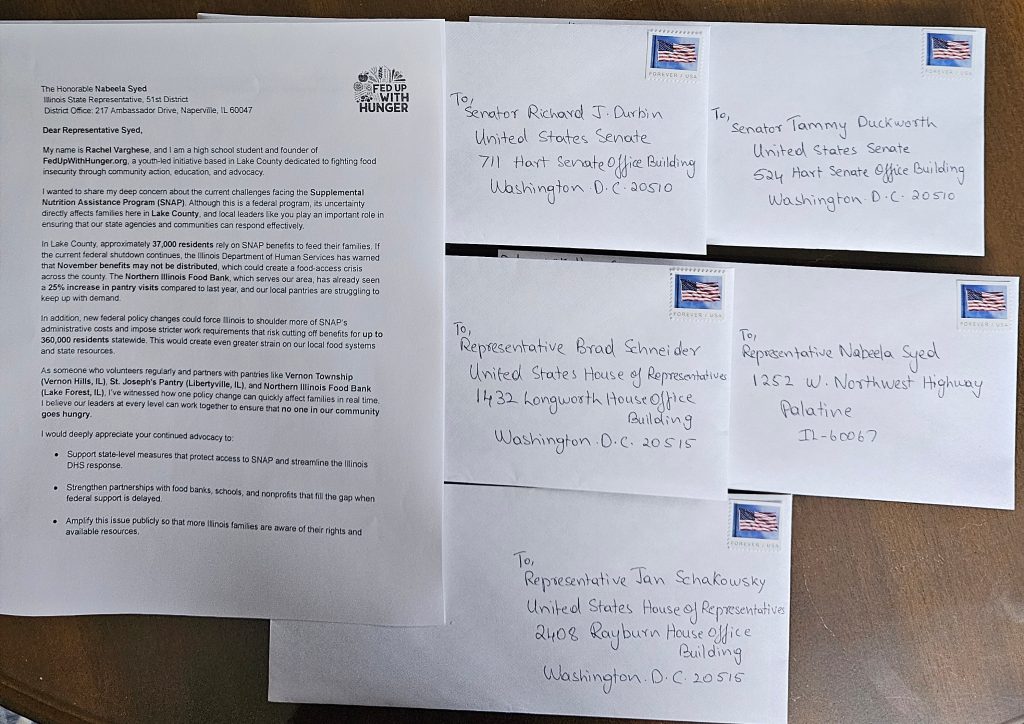 FED UP
WITH
HUNGER
The Honorable Nabeela Syed
Illinois State Representative, 51st District
District Office: 217 Ambassador Drive, Naperville, IL 60047
Dear Representative Syed,
My name is Rachel Varghese, and I am a high school student and founder of
FedUpWithHunger.org, a youth-led initiative based in Lake County dedicated to fighting food
insecurity through community action, education, and advocacy.
I wanted to share my deep concern about the current challenges facing the Supplemental
Nutrition Assistance Program (SNAP). Although this is a federal program, its uncertainty
directly affects families here in Lake County, and local leaders like you play an important role in
ensuring that our state agencies and communities can respond effectively.
In Lake County, approximately 37,000 residents rely on SNAP benefits to feed their families. If
the current federal shutdown continues, the Illinois Department of Human Services has warned
that November benefits may not be distributed, which could create a food-access crisis
across the county. The Northern Illinois Food Bank, which serves our area, has already seen
a 25% increase in pantry visits compared to last year, and our local pantries are struggling to
keep up with demand.
In addition, new federal policy changes could force Illinois to shoulder more of SNAP's
administrative costs and impose stricter work requirements that risk cutting off benefits for up to
360,000 residents statewide. This would create even greater strain on our local food systems
and state resources.
As someone who volunteers regularly and partners with pantries like Vernon Township
(Vernon Hills, IL), St. Joseph's Pantry (Libertyville, IL), and Northern Illinois Food Bank
(Lake Forest, IL), I've witnessed how one policy change can quickly affect families in real time.
I believe our leaders at every level can work together to ensure that no one in our community
goes hungry.
I would deeply appreciate your continued advocacy to:
• Support state-level measures that protect access to SNAP and streamline the Illinois
DHS response.
• Strengthen partnerships with food banks, schools, and nonprofits that fill the gap when
federal support is delayed.
• Amplify this issue publicly so that more Illinois families are aware of their rights and
available resources.
FOREVER / USA
To,
Senator Richard J. Durbin
United States Senate
711 Hart Senate Office Building
Washington D.C. 20510
FOREVER / USA
To,
Senator Tammy Duckworth
United States Senate
524 Hart Senate Office Building
Washington D.C. 20510
FOREVER / USA
To,
Representative Brad Schneider
United States House of Representatives
1432 Longworth House Office
Building
Washington D.C. 20515
FOREVER / USA
To,
Representative Nabeela Syed
1252 W. Northwest Highway
Palatine
IL-60067
FOREVER / USA
To,
Representative Jan Schakowsky
United States House of Representatives
2408 Rayburn House Office
Building
Washington. D.C. 20515